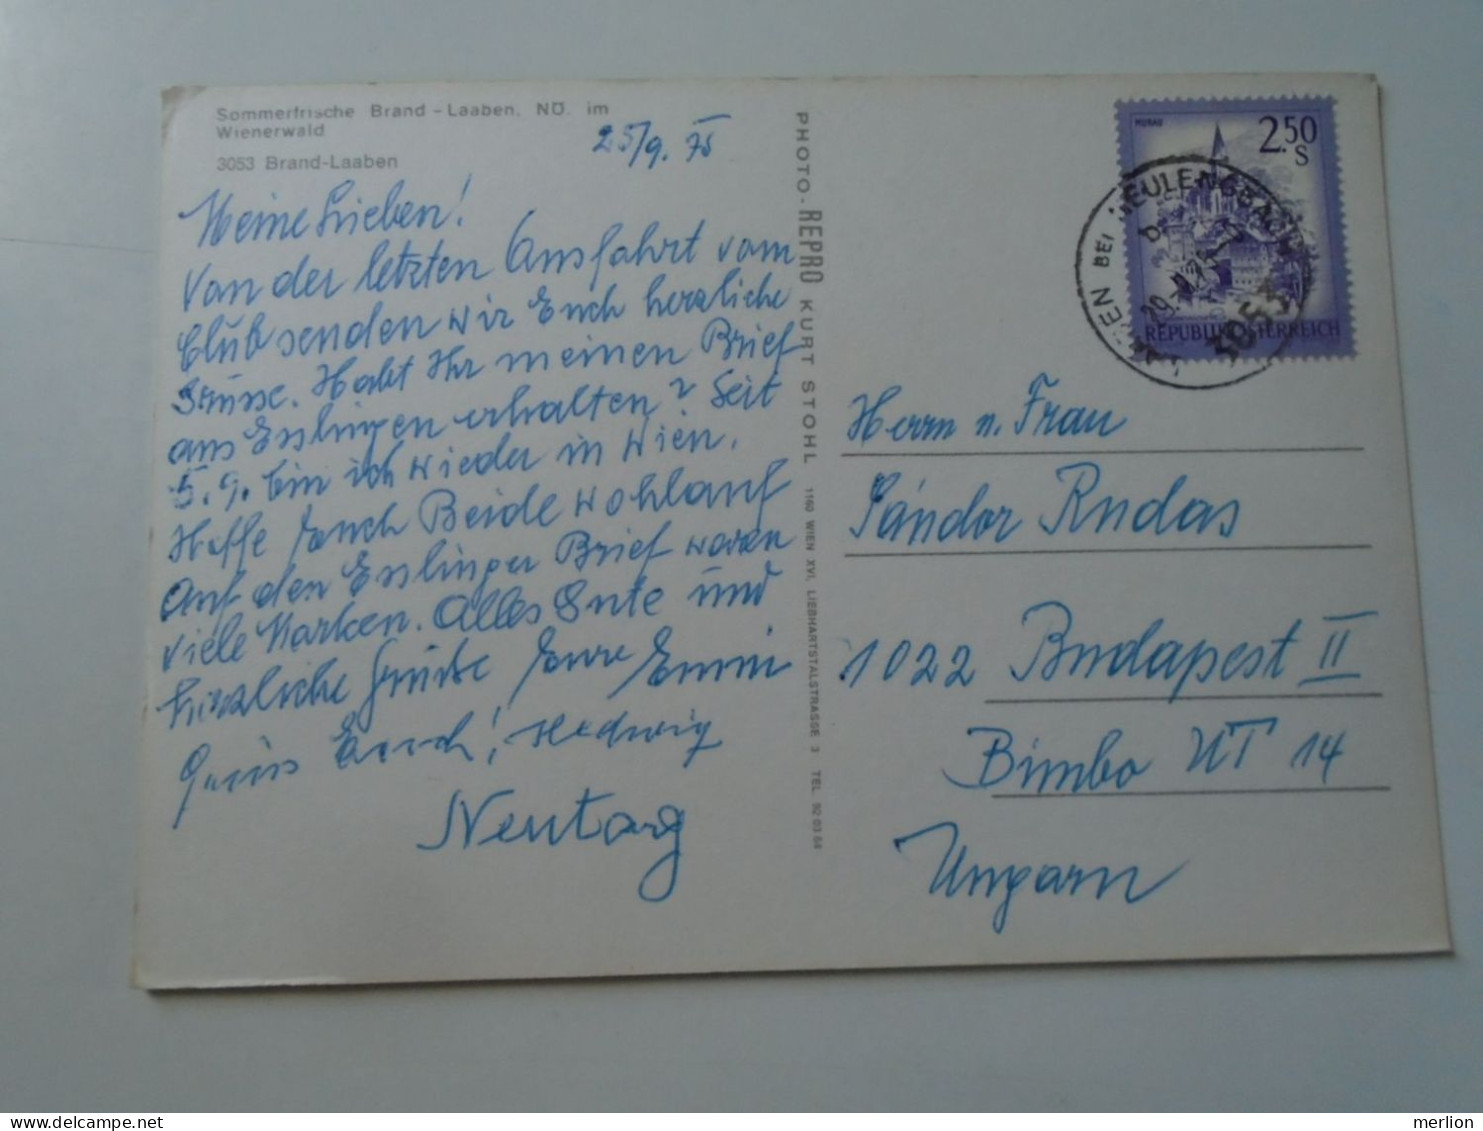 Sommerfrische Brand - Laaben, NÖ. im
Wienerwald
3053 Brand-Laaben
25/9. 75
Meine Lieben!
Von der letzten Ausfahrt vom
Club senden wir Euch herzliche
Grüsse. Habt Ihr meinen Brief
aus Esslingen erhalten? Seit
5.9. bin ich wieder in Wien.
Hoffe Euch Beide wohlauf
Auf den Esslinger Brief waren
viele Marken. Alles Gute und
Herzliche Grüsse Eure Emmi
Gruss Euch! Hedwig
Neutarg
PHOTO-REPRO KURT STOHL 1160 WIEN XVI, LIEBHARTSTALSTRASSE 3 TEL. 92 03 64
MURAU
2.50
S
REPUBLIK ÖSTERREICH
BEI NEULENGBACH
b
3053
Herrn u. Frau
Sándor Rudas
1022 Budapest II
Bimbo UT 14
Ungarn
merlion